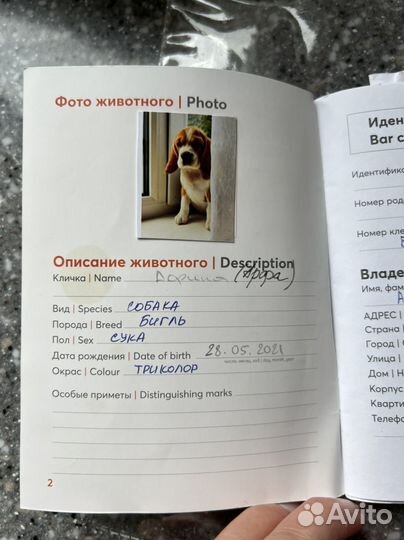 Фото животного | Photo
Описание животного | Description
Кличка | Name Дарина (Арфа)
Вид | Species СОБАКА
Порода | Breed БИГЛЬ
Пол | Sex СУКА
Дата рождения | Date of birth 28.05.2021
число, месяц, год | day, month, year
Окрас | Colour ТРИКОЛОР
Особые приметы | Distinguishing marks
2
Иден
Bar c
Идентифика
Номер род
Номер кле
Владе
Имя, фам
АДРЕС |
Страна |
Город | C
Улица |
Дом | H
Корпус
Кварти
Телефо
Avito